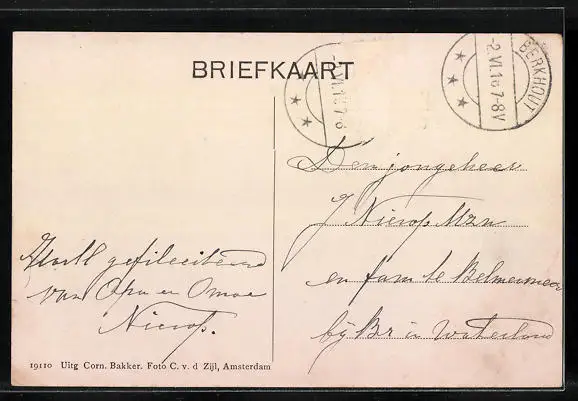 BRIEFKAART
BERKHOUT
-2.VI.16 7-8V
-2.VI.16 7-8
Den jongeheer
J Nierop Mzn
en fam te Belmermeer
bij Br in Waterland
Hartl gefileciteerd
van Opa en Omoe
Nierop.
19110 Uitg Corn. Bakker. Foto C. v. d Zijl, Amsterdam